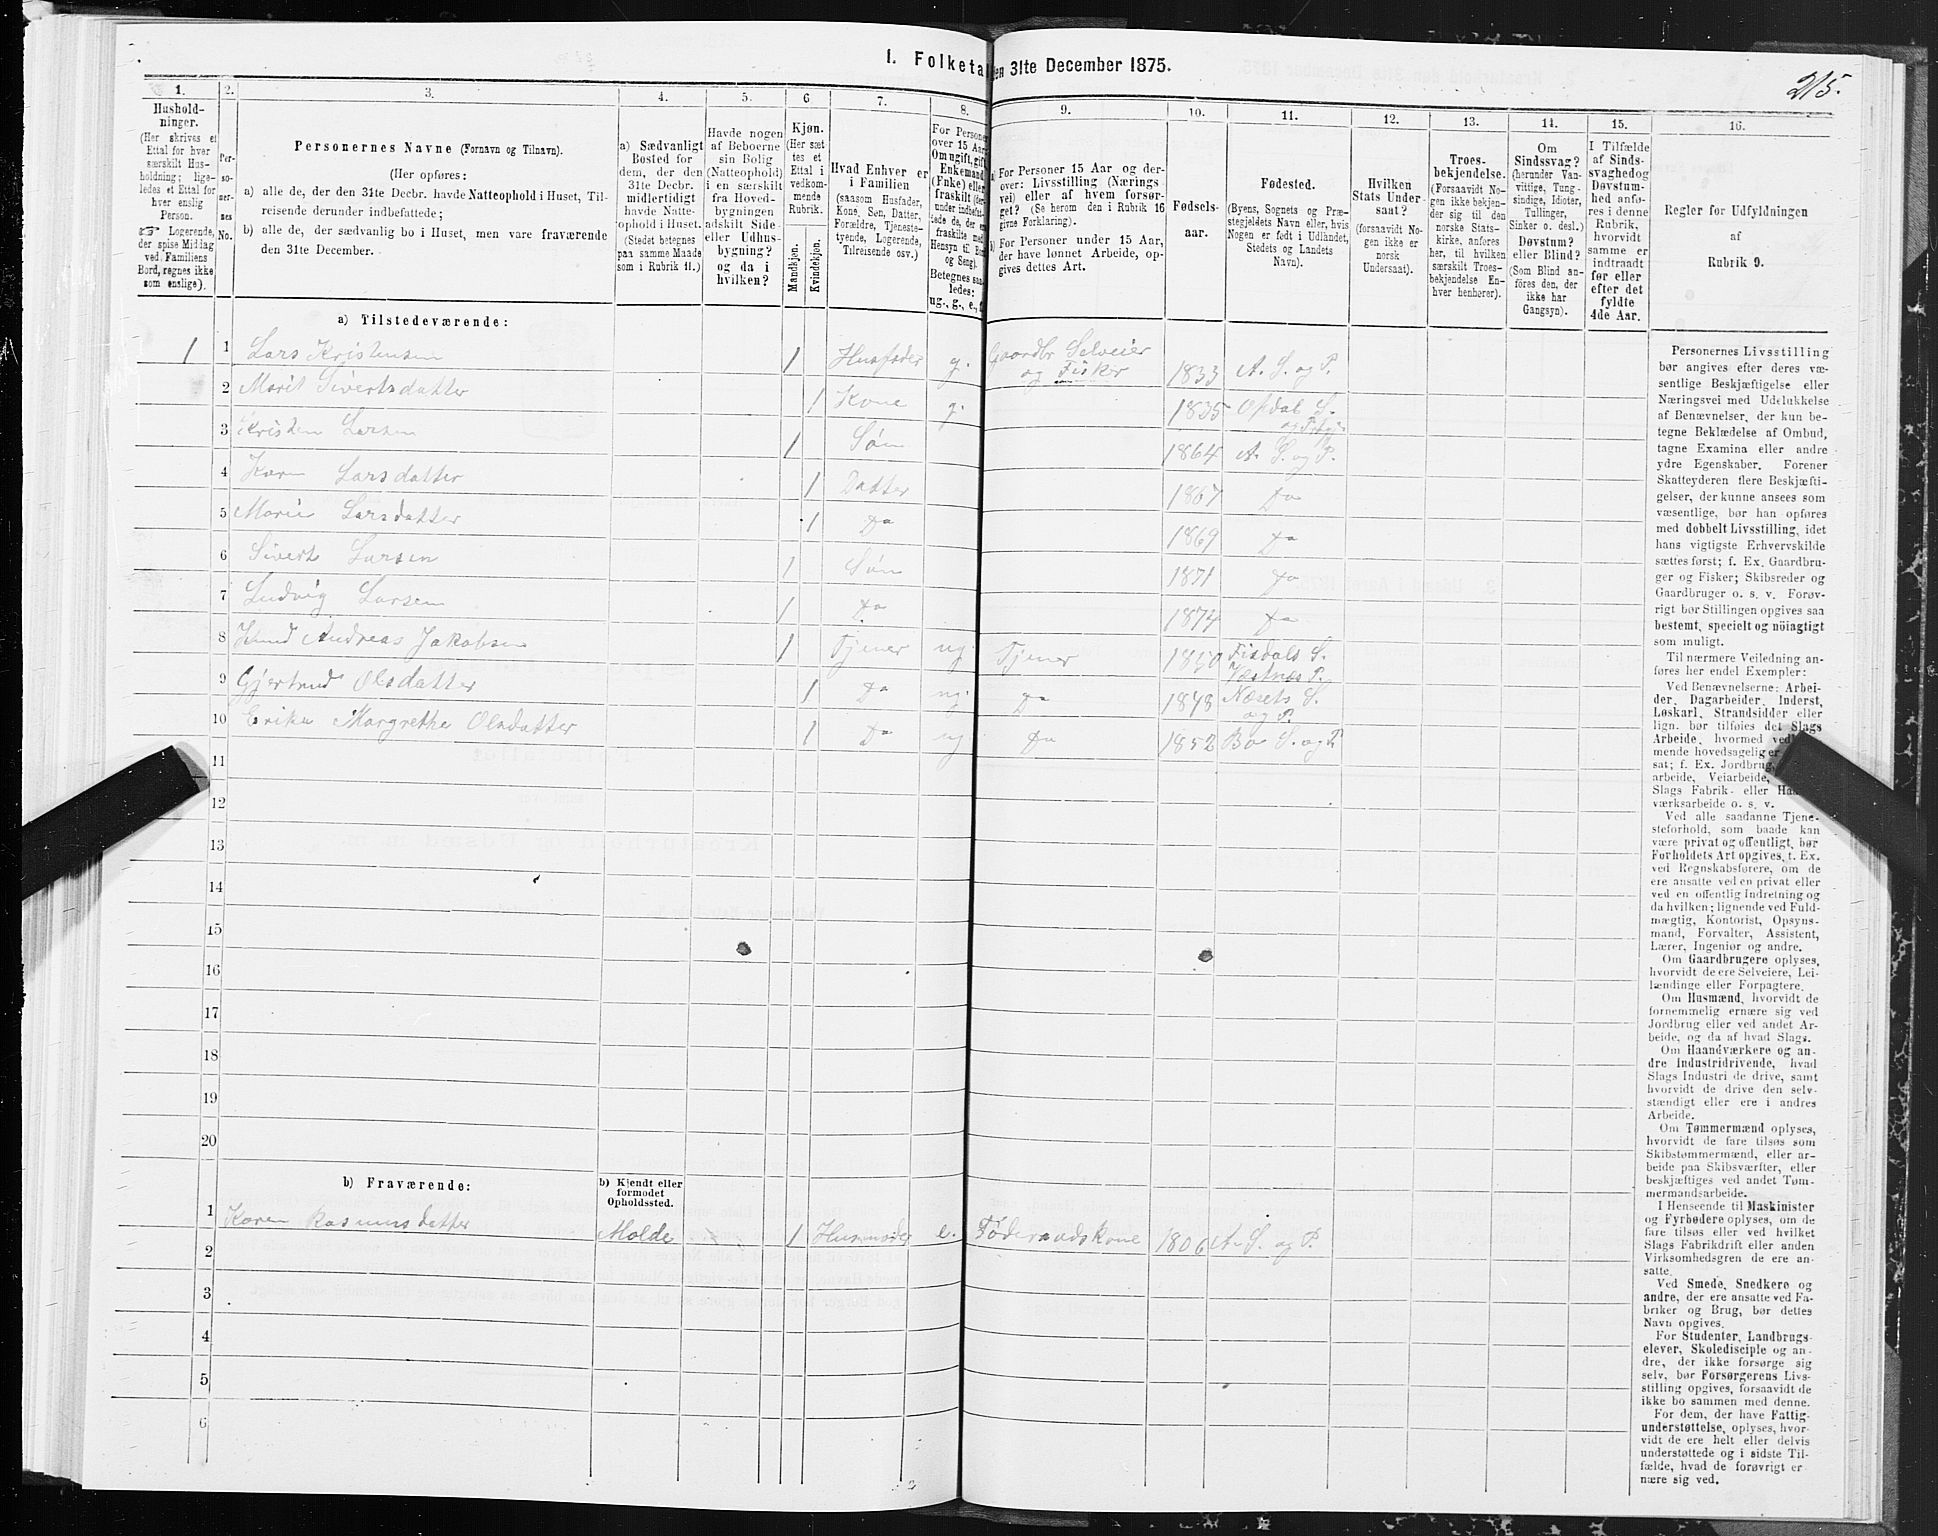 I. Folketal den 31te December 1875.
215.
1.
Hushold-
ninger.
(Her skrives et
Ettal for hver
særskilt Hus-
holdning; lige-
ledes et Ettal for
hver enslig
Person.
☞ Logerende,
der spise Middag
ved Familiens
Bord, regnes ikke
som enslige).
2.
Per-
so-
ner-
nes
No.
3.
Personernes Navne (Fornavn og Tilnavn).
(Her opføres:
a) alle de, der den 31te Decbr. havde Natteophold i Huset, Til-
reisende derunder indbefattede;
b) alle de, der sædvanlig bo i Huset, men vare fraværende
den 31te December.
4.
a) Sædvanligt
Bosted for
dem, der den
31te Decbr.
midlertidigt
havde Natte-
ophold i Huset.
(Stedet betegnes
paa samme Maade
som i Rubrik 11.)
5.
Havde nogen
af Beboerne
sin Bolig
(Natteophold)
i en særskilt
fra Hoved-
bygningen
adskilt Side-
eller Udhus-
bygning?
og da i
hvilken?
6
Kjøn.
(Her sæt-
tes et
Ettal i
vedkom-
mende
Rubrik.
Mandkjøn.
Kvindekjøn.
7.
Hvad Enhver er
i Familien
(saasom Husfader,
Kone, Søn, Datter,
Forældre, Tjeneste-
tyende, Logerende,
Tilreisende osv.)
8.
For Personer
over 15 Aar:
Om ugift, gift,
Enkemand
(Enke) eller
fraskilt
Betegnes saa-
ledes:
ug., g., e.,
9.
a) For Personer 15 Aar og der-
over: Livsstilling (Nærings-
vei) eller af hvem forsør-
get? (Se herom den i Rubrik 16
givne Forklaring).
b) For Personer under 15 Aar,
der have lønnet Arbeide, op-
gives dettes Art.
10.
Fødsels-
aar.
11.
Fødested.
(Byens, Sognets og Præ-
stegjeldets Navn eller, hvis
Nogen er født i Udlandet,
Stedets og Landets
Navn).
12.
Hvilken
Stats Under-
saat?
(forsaavidt No-
gen ikke er
norsk
Undersaat).
13.
Troes-
bekjendelse.
(Forsaavidt No-
gen ikke bekjen-
der sig til den
norske Stats-
kirke, anføres
her, til hvilken
særskilt Troes-
bekjendelse En-
hver henhører).
14.
Om
Sindssvag?
(herunder Van-
vittige, Tung-
sindige, Idioter,
Tullinger,
Sinker o. desl.)
Døvstum?
eller Blind?
(Som Blind an-
føres den, der
ikke har
Gangsyn).
15.
I Tilfælde
af Sinds-
svaghed og
Døvstum-
hed anfø-
res i denne
Rubrik,
hvorvidt
samme er
indtraadt
før eller
efter det
fyldte
4de Aar.
16.
Regler for Udfyldningen
af
Rubrik 9.
a) Tilstedeværende:
1 1 Lars Kristensen 1 Husfader g. Gaardbr Selveier og Fisker 1833 A. S. og P.
2 Marit Sivertsdatter 1 Kone g. 1835 Opdal S.
3 Kristen Larsen 1 Søn 1864 A. S. og P.
4 Karen Larsdatter 1 Datter 1867 Do
5 Marie Larsdatter 1 Do 1869 Do
6 Sivert Larsen 1 Søn 1871 Do
7 Ludvig Larsen 1 Do 1874 Do
8 Knud Andreas Jakobsen 1 Tjener ug. Tjener 1850 Fixdals S. Vestnæs P.
9 Gjertrud Olsdatter 1 Do ug. Do 1848 Næsets S. og P.
10 Erika Margrethe Olsdatter 1 Do ug Do 1852 Bo S. og P
11
12
13
14
15
16
17
18
19
20
b) Fraværende:
b) Kjendt eller
formodet
Opholdssted.
1 Karen Rasmusdatter Molde 1 Husmoder e. Føderaadskone 1806 A. S. og P.
2
3
4
5
6
Personernes Livsstilling
bør angives efter deres væ-
sentlige Beskjæftigelse eller
Næringsvei med Udelukkelse
af Benævnelser, der kun be-
tegne Beklædelse af Ombud,
tagne Examina eller andre
ydre Egenskaber. Forener
Skatteyderen flere Beskjæfti-
gelser, der kunne ansees som
væsentlige, bør han opføres
med dobbelt Livsstilling, idet
hans vigtigste Erhvervskilde
sættes først; f. Ex. Gaardbru-
ger og Fisker; Skibsreder og
Gaardbruger o. s. v. Forøv-
rigt bør Stillingen opgives saa
bestemt, specielt og nöiagtigt
som muligt.
Til nærmere Veiledning an-
føres her endel Exempler:
Ved Benævnelserne: Arbei-
der, Dagarbeider, Inderst,
Løskarl, Strandsidder eller
lign. bør tilføies det Slags
Arbeide, hvormed
mende hovedsagelig er
sat; f. Ex. Jordbrug,
arbeide, Veiarbeide,
Slags Fabrik- eller
værksarbeide o. s. v.
Ved alle saadanne Tjene-
steforhold, som baade kan
være privat og offentligt, bør
Forholdets Art opgives, t. Ex.
ved Regnskabsførere, om de
ere ansatte ved en privat eller
ved en offentlig Indretning og
da hvilken; lignende ved Fuld-
mægtig, Kontorist, Opsyns-
mand, Forvalter, Assistent,
Lærer, Ingeniør og andre.
Om Gaardbrugere oplyses,
hvorvidt de ere Selveiere, Lei-
lændinge eller Forpagtere.
Om Husmænd, hvorvidt de
fornemmelig ernære sig ved
Jordbrug eller ved andet Ar-
beide, og da af hvad Slags.
Om Haandværkere og an-
dre Industridrivende, hvad
Slags Industri de drive, samt
hvorvidt de drive den selv-
stændigt eller ere i andres
Arbeide.
Om Tømmermænd oplyses,
hvorvidt de fare tilsøs som
Skibstømmermænd, eller ar-
beide paa Skibsværfter, eller
beskjæftiges ved andet Tøm-
mermandsarbeide.
I Henseende til Maskinister
og Fyrbødere oplyses, om de
fare tilsøs eller ved hvilket
Slags Fabrikdrift eller anden
Virksomhedsgren de ere an-
satte.
Ved Smede, Snedkere og
andre, der ere ansatte ved Fa-
briker og Brug, bør dettes
Navn opgives.
For Studenter, Landbrugs-
elever, Skoledisciple og an-
dre, der ikke forsørge sig
selv, bør Forsørgerens Livs-
stilling opgives, forsaavidt de
ikke bo sammen med denne.
For dem, der have Fattig-
understøttelse, oplyses, hvor-
vidt de ere helt eller delvis
understøttede og i sidste Til-
fælde, hvad de forøvrigt er-
nære sig ved.